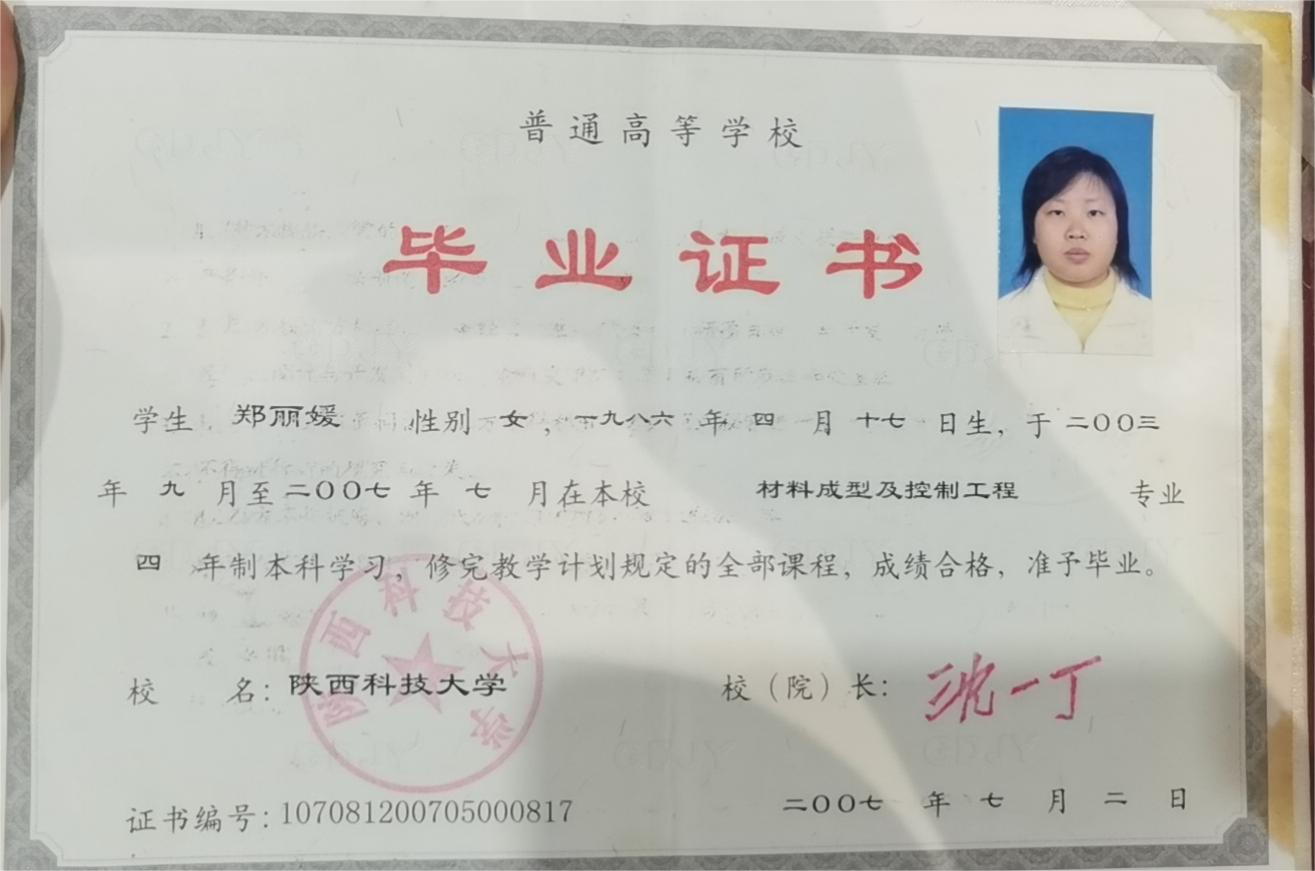 普通高等学校
毕业证书
学生 郑丽媛 性别 女，一九八六 年 四 月 十七 日生，于 二〇〇三
年 九 月至 二〇〇七 年 七 月在本校 材料成型及控制工程 专业
四 年制本科学习，修完教学计划规定的全部课程，成绩合格，准予毕业。
陕西科技大学
校 名：陕西科技大学 校（院）长：沈一丁
证书编号：107081200705000817 二〇〇七 年 七 月 二 日